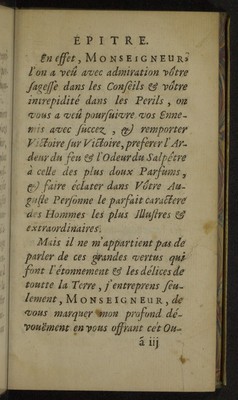 ÉPITRE.
En effet, MONSEIGNEUR,
l'on a veû avec admiration vôtre
sagesse dans les Conseils & vôtre
intrepidité dans les Perils, on
vous a veû poursuivre vos Enne-
mis avec succez, & remporter
Victoire sur Victoire, preferer l'Ar-
deur du feu & l'Odeur du Salpétre
à celle des plus doux Parfums,
& faire éclater dans Vôtre Au-
guste Personne le parfait caractere
des Hommes les plus Illustres &
extraordinaires.
Mais il ne m'appartient pas de
parler de ces grandes vertus qui
font l'étonnement & les délices de
toutte la Terre, j'entreprens seu-
lement, MONSEIGNEUR, de
vous marquer mon profond dé-
vouëment en vous offrant cét Ou-
ã iij